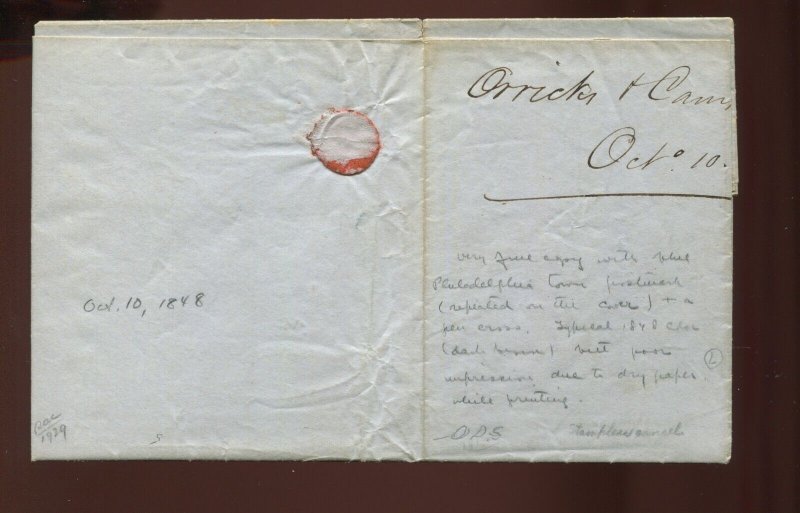 Orricks & Cam
Octo. 10.
very fine copy with blue
Philadelphia town postmark
(repeated on the cover) + a
pen cross. Typical 1848 color
(dark brown) but poor
impression due to dry paper
while printing.
L
Oct. 10, 1848
1929
S